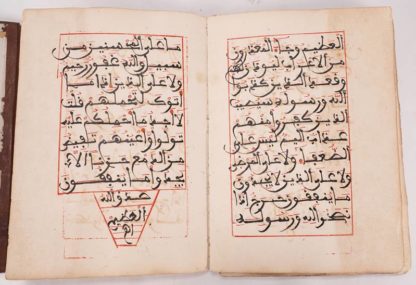 العظيم وجاء المعذرون
من الاعراب ليوذن لهم و
قعد الذين كذبوا ا
لله ورسوله سيصيب
الذين كفروا منهم
عذاب اليم ليس على
الضعفاء ولا على المرضى
ولا على الذين لا يجدون
ما ينفقون حرج اذا
نصحوا لله ورسوله
ما على المحسنين من
سبيل والله غفور رحيم
ولا على الذين اذا ما
اتوك لتحملهم قلت
لا اجد ما احملكم عليه
تولوا واعينهم تفيض
من الدمع حزنا الا
يجدوا ما ينفقون
صدق الله
العظيم